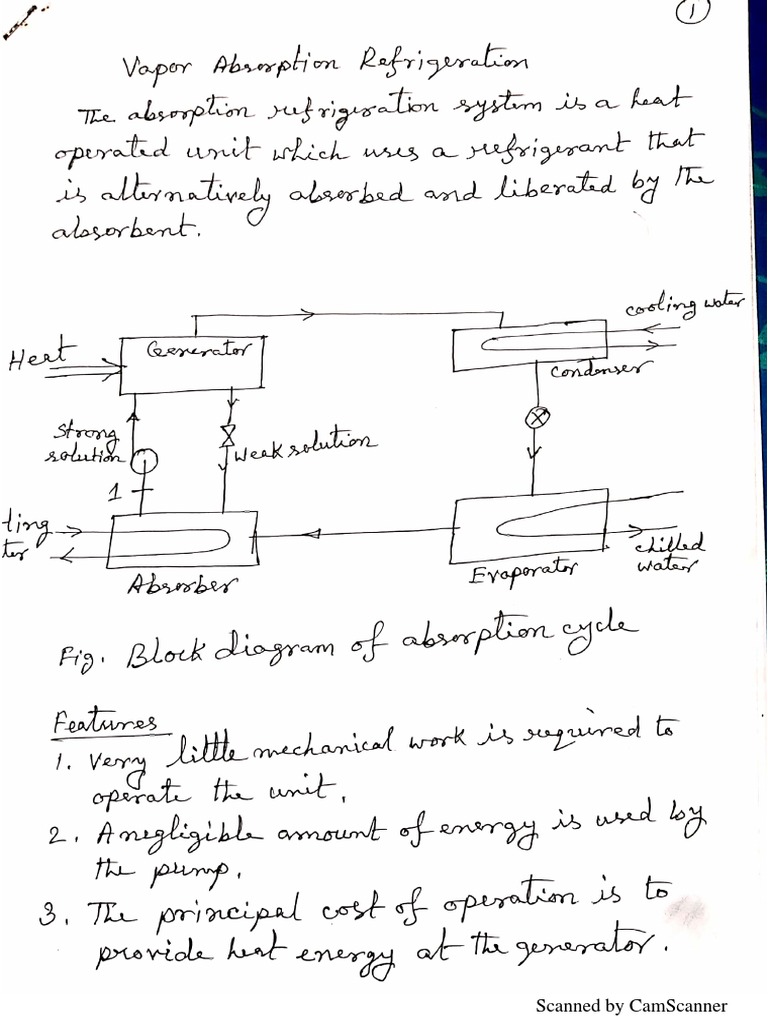 1
Vapor Absorption Refrigeration
The absorption refrigeration system is a heat
operated unit which uses a refrigerant that
is alternatively absorbed and liberated by the
absorbent.
cooling water
Heat
Generator
condenser
strong
solution
weak solution
1
ting
ter
chilled
water
Absorber
Evaporator
Fig. Block diagram of absorption cycle
Features
1. Very little mechanical work is required to
operate the unit.
2. A negligible amount of energy is used by
the pump.
3. The principal cost of operation is to
provide heat energy at the generator.
Scanned by CamScanner